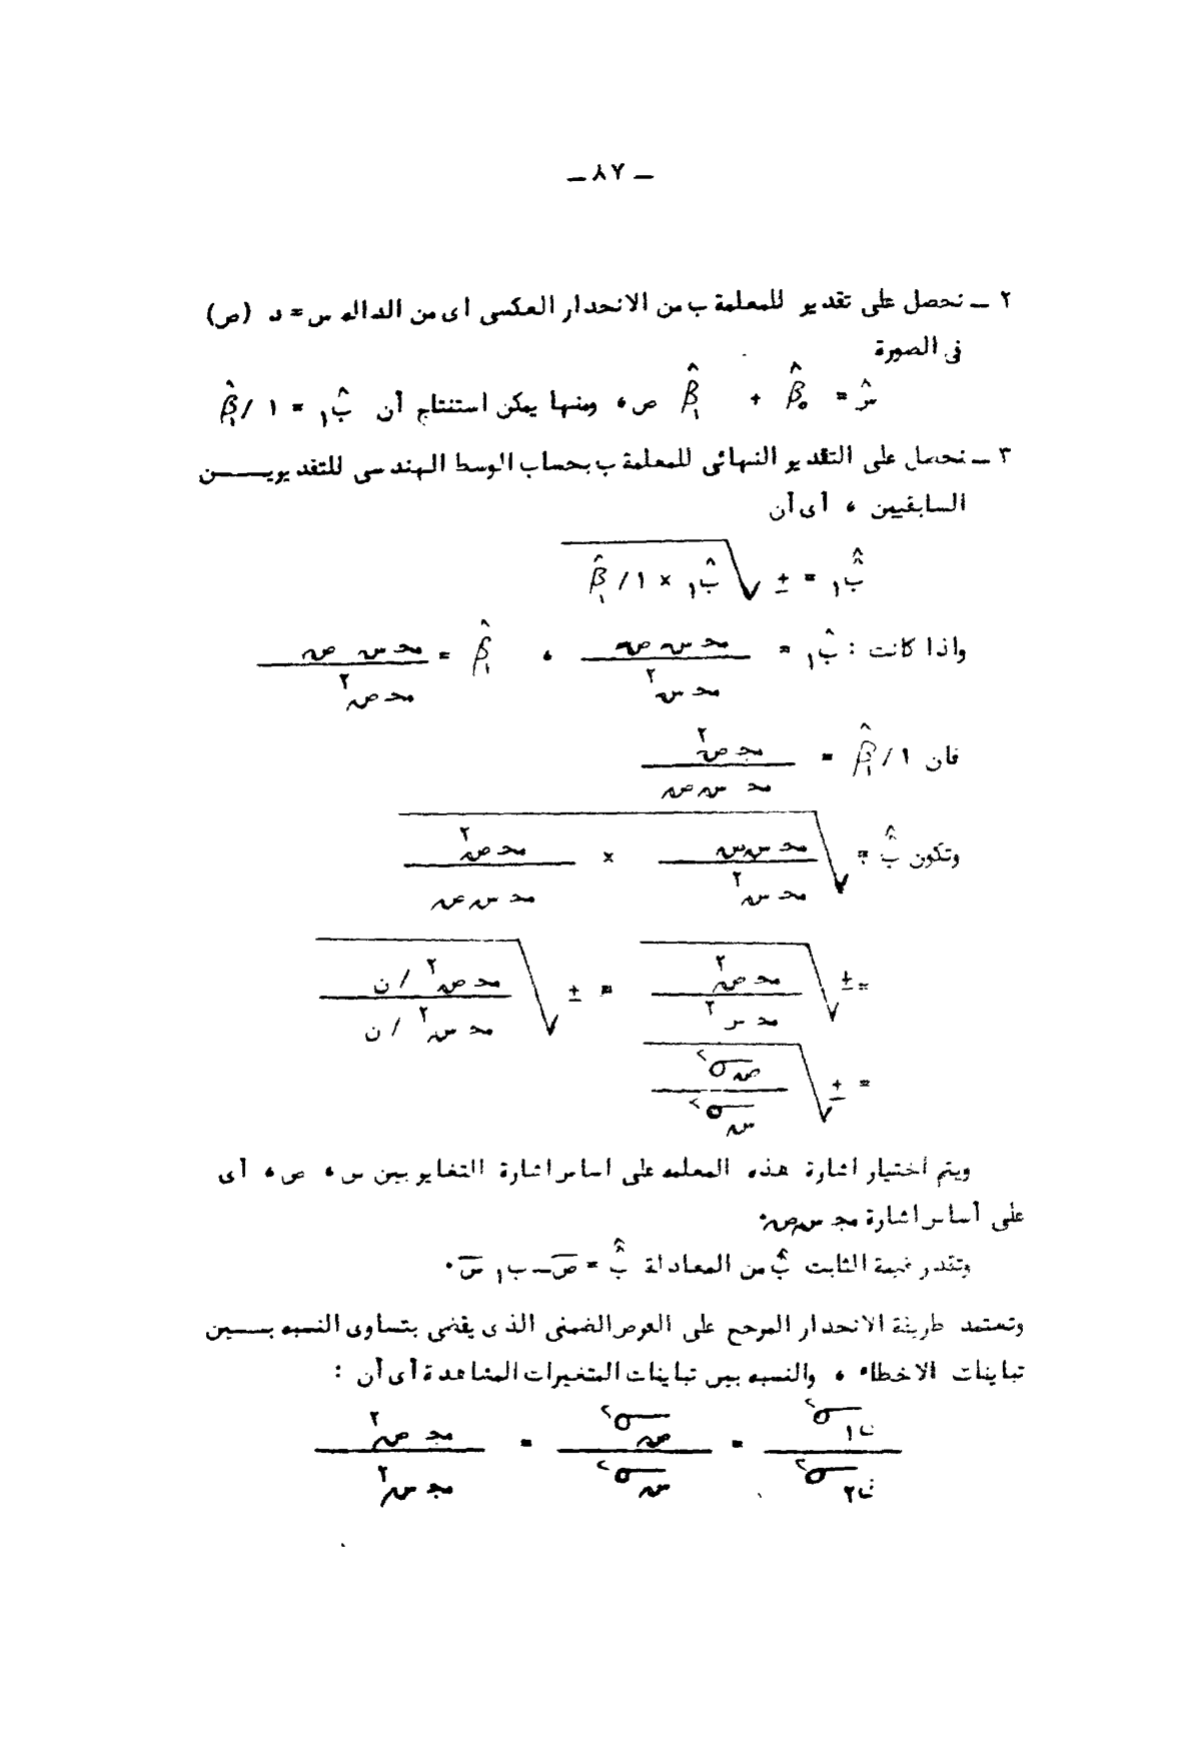 ـ ٨٧ ـ
٢ ـ نحصل على تقدير للمعلمة ب من الانحدار العكسى اى من الداله س = د (ص)
فى الصورة
س̂ = β̂₀ + β̂₁ ص، ومنها يمكن استنتاج أن ب̂₁ = ١ / β̂₁
٣ ـ نحصل على التقدير النهائى للمعلمة ب بحساب الوسط الهندسى للتقديريـــن
السابقين ، أى أن
ب̂̂₁ = ± √(ب̂₁ × ١ / β̂₁)
واذا كانت : ب̂₁ = محـ س ص / محـ س٢ ، β̂₁ = محـ س ص / محـ ص٢
فان ١ / β̂₁ = مجـ ص٢ / محـ س ص
وتكون ب̂̂ = √(محـ س س / محـ س٢ × محـ ص٢ / محـ س ص)
= ± √(محـ ص٢ / محـ س٢) = ± √((محـ ص٢ / ن) / (محـ س٢ / ن))
= ± √(σ٢ص / σ٢س)
ويتم اختيار اشارة هذه المعلمه على اساس اشارة التغاير بين س ، ص ، أى
على أساس اشارة مجـ س ص٠
وتقدر قيمة الثابت ب̂̂ من المعادلة ب̂̂ = ص̄ ـ ب₁ س̄ ٠
وتعتمد طريقة الانحدار المرجح على الفرض الضمنى الذى يقضى بتساوى النسبه بــين
تباينات الاخطاء ، والنسبه بين تباينات المتغيرات المشاهدة أى أن :
σ٢ن١ / σ٢ن٢ = σ٢ص / σ٢س = مجـ ص٢ / مجـ س٢